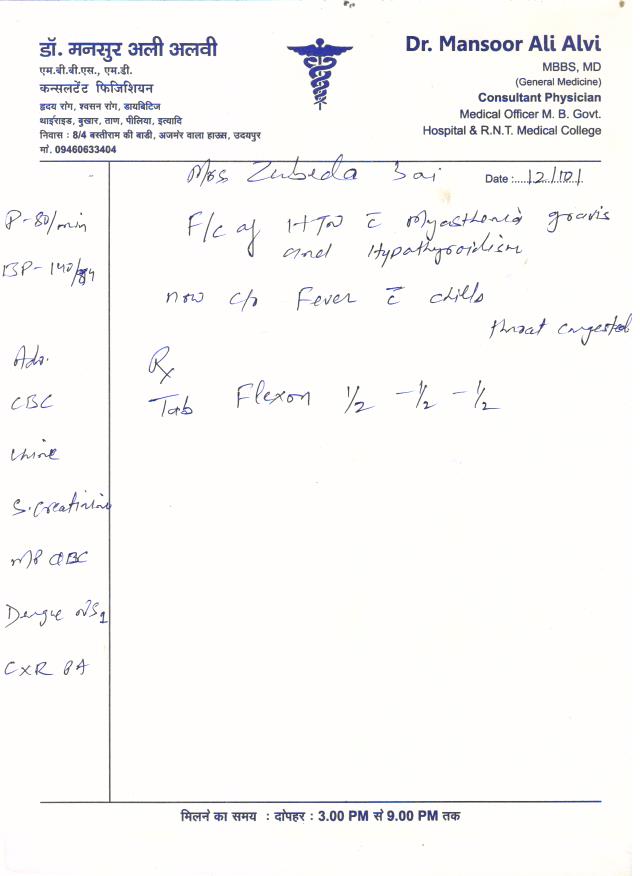 डॉ. मनसुर अली अलवी
एम.बी.बी.एस., एम.डी.
कन्सलटेंट फिजिशियन
हृदय रोग, श्वसन रोग, डायबिटिज
थाईराइड, बुखार, ताण, पीलिया, इत्यादि
निवास : 8/4 बस्तीराम की बाडी, अजमेर वाला हाउस, उदयपुर
मो. 09460633404
Dr. Mansoor Ali Alvi
MBBS, MD
(General Medicine)
Consultant Physician
Medical Officer M. B. Govt.
Hospital & R.N.T. Medical College
Mrs Zubeda Bai
Date : 12/10/
P-80/min
BP-140/84
F/c of HTN c̄ Myasthenia gravis
and Hypothyroidism
now c/o Fever c̄ chills
throat congested
Adv.
CBC
Urine
S.Creatinine
MP QBC
Dengue NS1
CXR PA
Rx
Tab Flexon 1/2 - 1/2 - 1/2
मिलने का समय : दोपहर : 3.00 PM से 9.00 PM तक